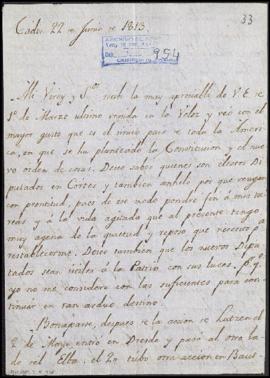 33
Cadiz 22 de Junio de 1813.
954
Mi Virey y S.or recibí la muy apreciable de V. E. de
1.º de Marzo ultimo venida en la Veloz y veo con el
mayor gusto que es el unico país de toda la Améri-
ca, en que se ha planteado la Constitucion y el nue-
vo orden de cosas. Deseo saber quienes son electos Di-
putados en Córtes y tambien anhelo por que vengan
con prontitud, pues de ese modo pondre fin á mis ta-
reas y á la vida agitada que al presente tengo
muy agena de la quietud y reposo que necesito p.a
restablecerme. Deseo tambien que los nuevos Dipu-
tados sean utiles á la Patria con sus luces, p.r q.e
yo no me considero con las suficientes para con-
tinuar en tan arduo destino.
Bonaparte, despues de la accion de Lutzen el
2 de Mayo entró en Dresde y pasó al otro la-
do del Elba: el 20 tubo otra accion en Baut-